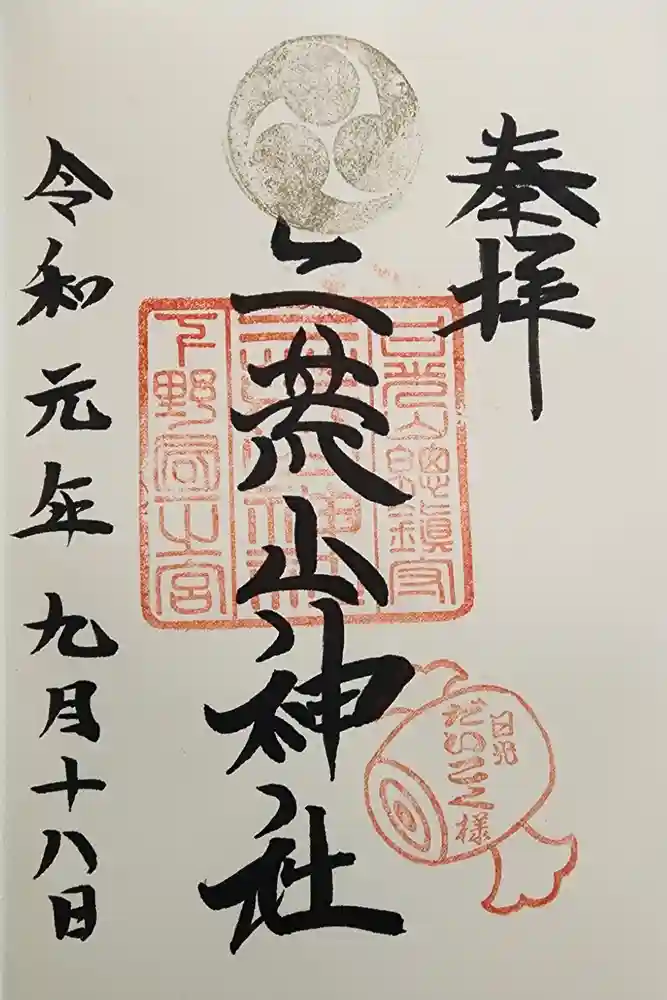 奉拝
二荒山神社
令和元年九月十八日
日光山総鎮守
下野国一之宮
日光
だいこく様